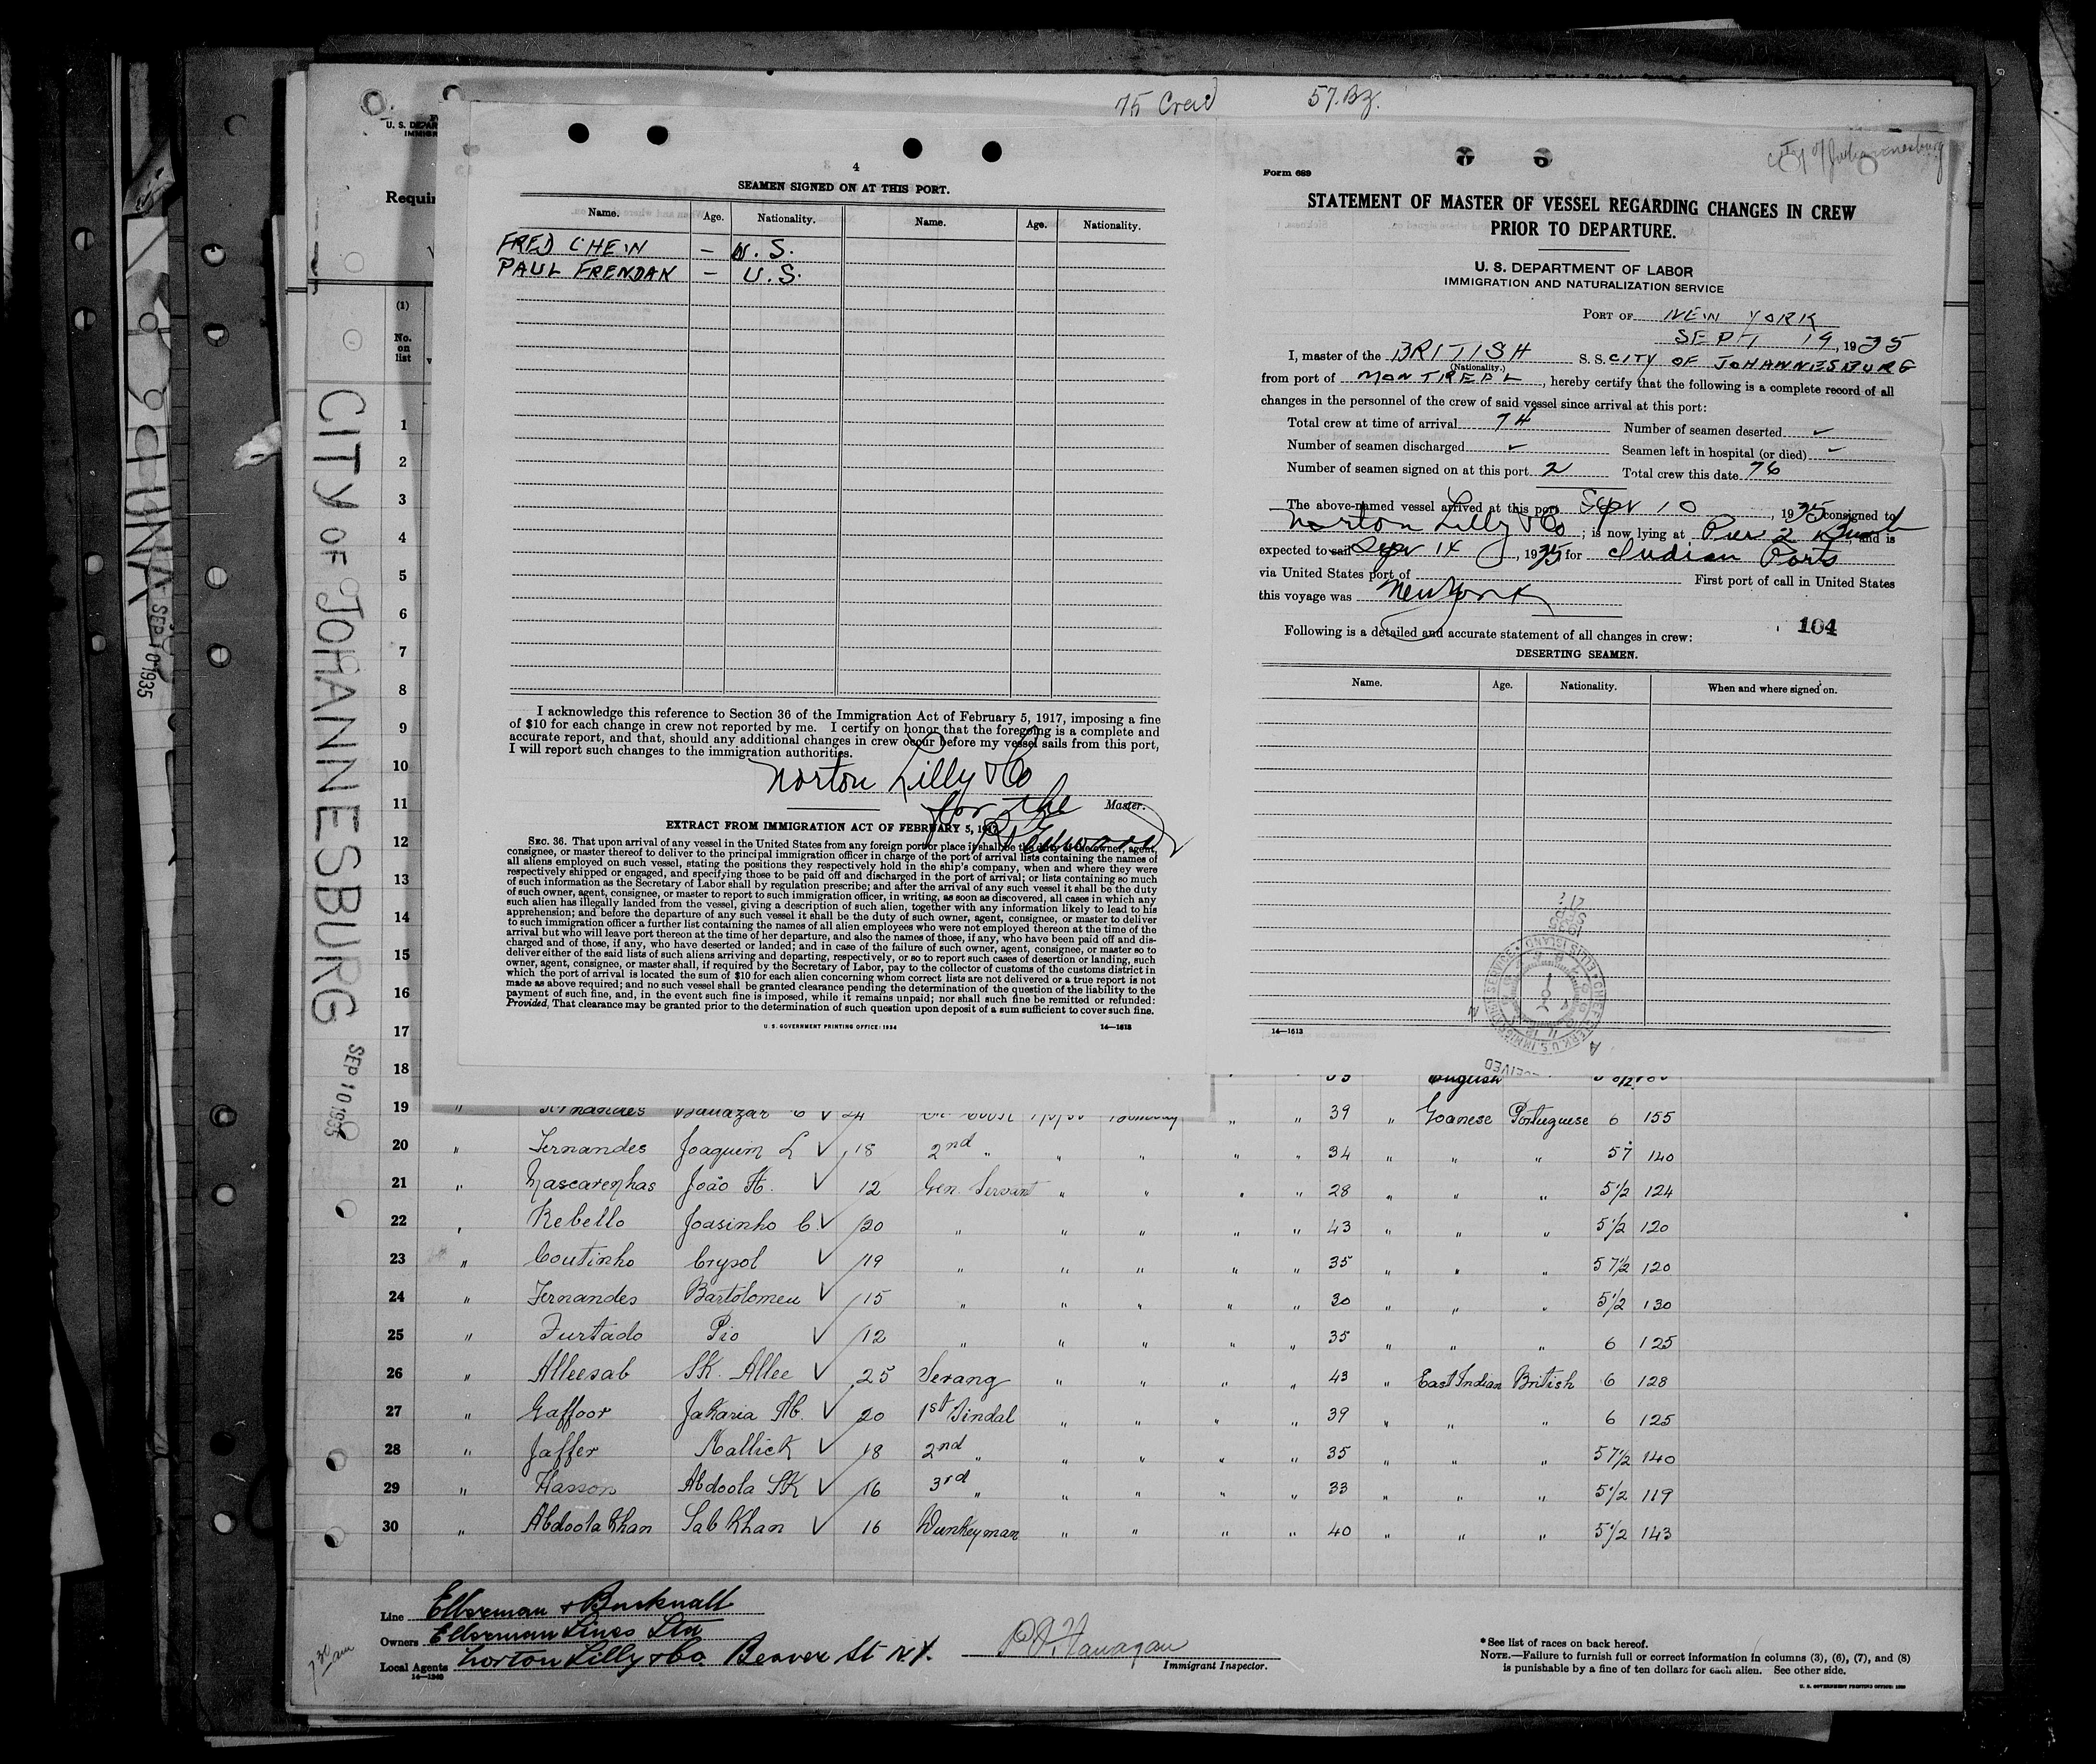 75 Crew 57.Bz.
City of Johannesburg
CITY OF JOHANNESBURG SEP 10 1935
CHUNA SEP 10 1935
U. S. DEPAR
IMMIGR
Requir
(1)
No. on list
4
SEAMEN SIGNED ON AT THIS PORT.
Name. Age. Nationality. Name. Age. Nationality.
FRED CHEW — U.S.
PAUL FRENDAK — U.S.
I acknowledge this reference to Section 36 of the Immigration Act of February 5, 1917, imposing a fine
of $10 for each change in crew not reported by me. I certify on honor that the foregoing is a complete and
accurate report, and that, should any additional changes in crew occur before my vessel sails from this port,
I will report such changes to the immigration authorities.
Norton Lilly & Co
for the Master.
EXTRACT FROM IMMIGRATION ACT OF FEBRUARY 5, 1917.
SEC. 36. That upon arrival of any vessel in the United States from any foreign port or place it shall be the duty of the owner, agent,
consignee, or master thereof to deliver to the principal immigration officer in charge of the port of arrival lists containing the names of
all aliens employed on such vessel, stating the positions they respectively hold in the ship's company, when and where they were
respectively shipped or engaged, and specifying those to be paid off and discharged in the port of arrival; or lists containing so much
of such information as the Secretary of Labor shall by regulation prescribe; and after the arrival of any such vessel it shall be the duty
of such owner, agent, consignee, or master to report to such immigration officer, in writing, as soon as discovered, all cases in which any
such alien has illegally landed from the vessel, giving a description of such alien, together with any information likely to lead to his
apprehension; and before the departure of any such vessel it shall be the duty of such owner, agent, consignee, or master to deliver
to such immigration officer a further list containing the names of all alien employees who were not employed thereon at the time of the
arrival but who will leave port thereon at the time of her departure, and also the names of those, if any, who have been paid off and dis-
charged and of those, if any, who have deserted or landed; and in case of the failure of such owner, agent, consignee, or master so to
deliver either of the said lists of such aliens arriving and departing, respectively, or so to report such cases of desertion or landing, such
owner, agent, consignee, or master shall, if required by the Secretary of Labor, pay to the collector of customs of the customs district in
which the port of arrival is located the sum of $10 for each alien concerning whom correct lists are not delivered or a true report is not
made as above required; and no such vessel shall be granted clearance pending the determination of the question of the liability to the
payment of such fine, and, in the event such fine is imposed, while it remains unpaid; nor shall such fine be remitted or refunded:
Provided, That clearance may be granted prior to the determination of such question upon deposit of a sum sufficient to cover such fine.
U. S. GOVERNMENT PRINTING OFFICE: 1934 14—1613
Form 689
STATEMENT OF MASTER OF VESSEL REGARDING CHANGES IN CREW
PRIOR TO DEPARTURE.
U. S. DEPARTMENT OF LABOR
IMMIGRATION AND NATURALIZATION SERVICE
PORT OF NEW YORK
SEPT 14, 1935
I, master of the BRITISH S. S. CITY OF JOHANNESBURG
(Nationality.)
from port of MONTREAL, hereby certify that the following is a complete record of all
changes in the personnel of the crew of said vessel since arrival at this port:
Total crew at time of arrival 74 Number of seamen deserted ✓
Number of seamen discharged ✓ Seamen left in hospital (or died) ✓
Number of seamen signed on at this port 2 Total crew this date 76
The above-named vessel arrived at this port Sept 10, 1935 consigned to
Norton Lilly & Co; is now lying at Pier 2 Bush, and is
expected to sail Sept 14, 1935 for Indian Ports
via United States port of First port of call in United States
this voyage was New York
Following is a detailed and accurate statement of all changes in crew: 104
DESERTING SEAMEN.
Name. Age. Nationality. When and where signed on.
14—1613
1
2
3
4
5
6
7
8
9
10
11
12
13
14
15
16
17
18 English
19 " Fernandes Baltazar C ✓ 24 " " 39 " Goanese Portuguese 6 155
20 " Fernandes Joaquim L ✓ 18 2nd " " " " " 34 " " " 5 7 140
21 " Mascarenhas João H. ✓ 12 Gen. Servant " " " " 28 " " " 5 1/2 124
22 " Rebello Joasinho C. ✓ 20 " " " " " 43 " " " 5 1/2 120
23 " Coutinho Crysol ✓ 19 " " " " " 35 " " " 5 7 1/2 120
24 " Fernandes Bartolomeu ✓ 15 " " " " " 30 " " " 5 1/2 130
25 " Furtado Pio ✓ 12 " " " " " 35 " " " 6 125
26 " Alleesab SK. Allee ✓ 25 Serang " " " " 43 " East Indian British 6 128
27 " Gaffoor Jakaria Ab. ✓ 20 1st Tindal " " " " 39 " " " 6 125
28 " Jaffer Mallick ✓ 18 2nd " " " " " 35 " " " 5 7 1/2 140
29 " Hasson Abdoola SK ✓ 16 3rd " " " " " 33 " " " 5 1/2 119
30 " Abdoola Khan Sab Khan ✓ 16 Wunkeyman " " " " 40 " " " 5 1/2 143
Line Ellerman & Bucknall
Owners Ellerman Lines Ltd
Local Agents Norton Lilly & Co. Beaver St N.Y.
14—1240
7 30 am
Immigrant Inspector.
* See list of races on back hereof.
NOTE.—Failure to furnish full or correct information in columns (3), (6), (7), and (8)
is punishable by a fine of ten dollars for each alien. See other side.
U. S. GOVERNMENT PRINTING OFFICE: 1930